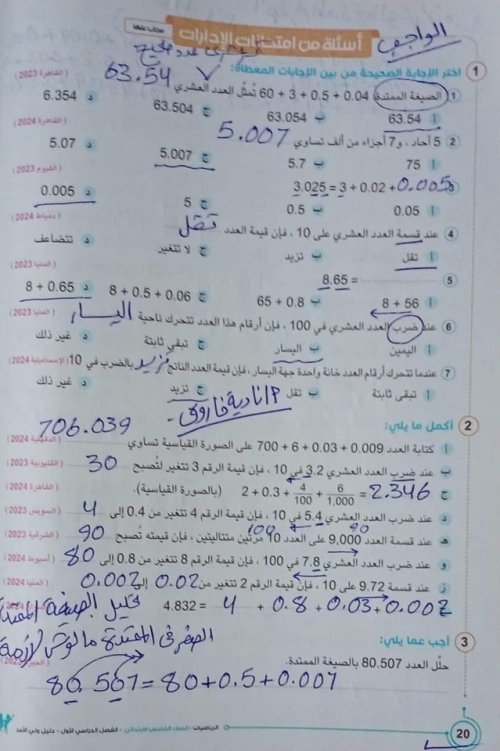 الواجب
أسئلة من امتحانات الإدارات
مجاب عنها
1 اختر الإجابة الصحيحة من بين الإجابات المعطاة:
63.54
(القاهرة 2023)
1 الصيغة الممتدة 60 + 3 + 0.5 + 0.04 تمثل العدد العشري
أ 63.54 ب 63.054 ج 63.504 د 6.354
(القاهرة 2024)
2 5 آحاد ، و7 أجزاء من ألف تساوي 5.007
أ 75 ب 5.7 ج 5.007 د 5.07
(الفيوم 2023)
3.025 = 3 + 0.02 + 0.005
أ 0.05 ب 0.5 ج 5 د 0.005
(دمياط 2024)
4 عند قسمة العدد العشري على 10 ، فإن قيمة العدد تقل
أ تقل ب تزيد ج لا تتغير د تتضاعف
(المنيا 2023)
5 8.65 =
أ 8 + 56 ب 65 + 0.8 ج 8 + 0.5 + 0.06 د 8 + 0.65
(المنيا 2023)
6 عند ضرب العدد العشري في 100 ، فإن أرقام هذا العدد تتحرك ناحية اليسار
أ اليمين ب اليسار ج تبقى ثابتة د غير ذلك
7 عندما تتحرك أرقام العدد خانة واحدة جهة اليسار، فإن قيمة العدد الناتج تزيد بالضرب في 10 (الإسماعيلية 2024)
أ تبقى ثابتة ب تقل ج تزيد د غير ذلك
أ/نادية فاروق
2 أكمل ما يلي:
706.039
أ كتابة العدد 700 + 6 + 0.03 + 0.009 على الصورة القياسية تساوي (الدقهلية 2024)
ب عند ضرب العدد العشري 3.2 في 10 ، فإن قيمة الرقم 3 تتغير لتصبح 30 (القليوبية 2023)
ج 2 + 0.3 + 4/100 + 6/1,000 = 2.346 (بالصورة القياسية). (القاهرة 2024)
د عند ضرب العدد العشري 5.4 في 10 ، فإن قيمة الرقم 4 تتغير من 0.4 إلى 4 (السويس 2023)
هـ عند قسمة العدد 9,000 على 10 مرتين متتاليتين ، فإن قيمته تصبح 90 (الشرقية 2023)
و عند ضرب العدد العشري 7.8 في 100 ، فإن قيمة الرقم 8 تتغير من 0.8 إلى 80 (أسيوط 2024)
ز عند قسمة 9.72 على 10 ، فإن قيمة الرقم 2 تتغير من 0.02 إلى 0.002 (المنيا 2024)
ح 4.832 = 4 + 0.8 + 0.03 + 0.002
تحليل الصيغة الممتدة
الصفر فى الممتدة مالوش لازمة
3 أجب عما يلي:
حلّل العدد 80.507 بالصيغة الممتدة.
80.507 = 80 + 0.5 + 0.007
20
الرياضيات - الصف الخامس الابتدائي - الفصل الدراسي الأول - دليل ولي الأمر